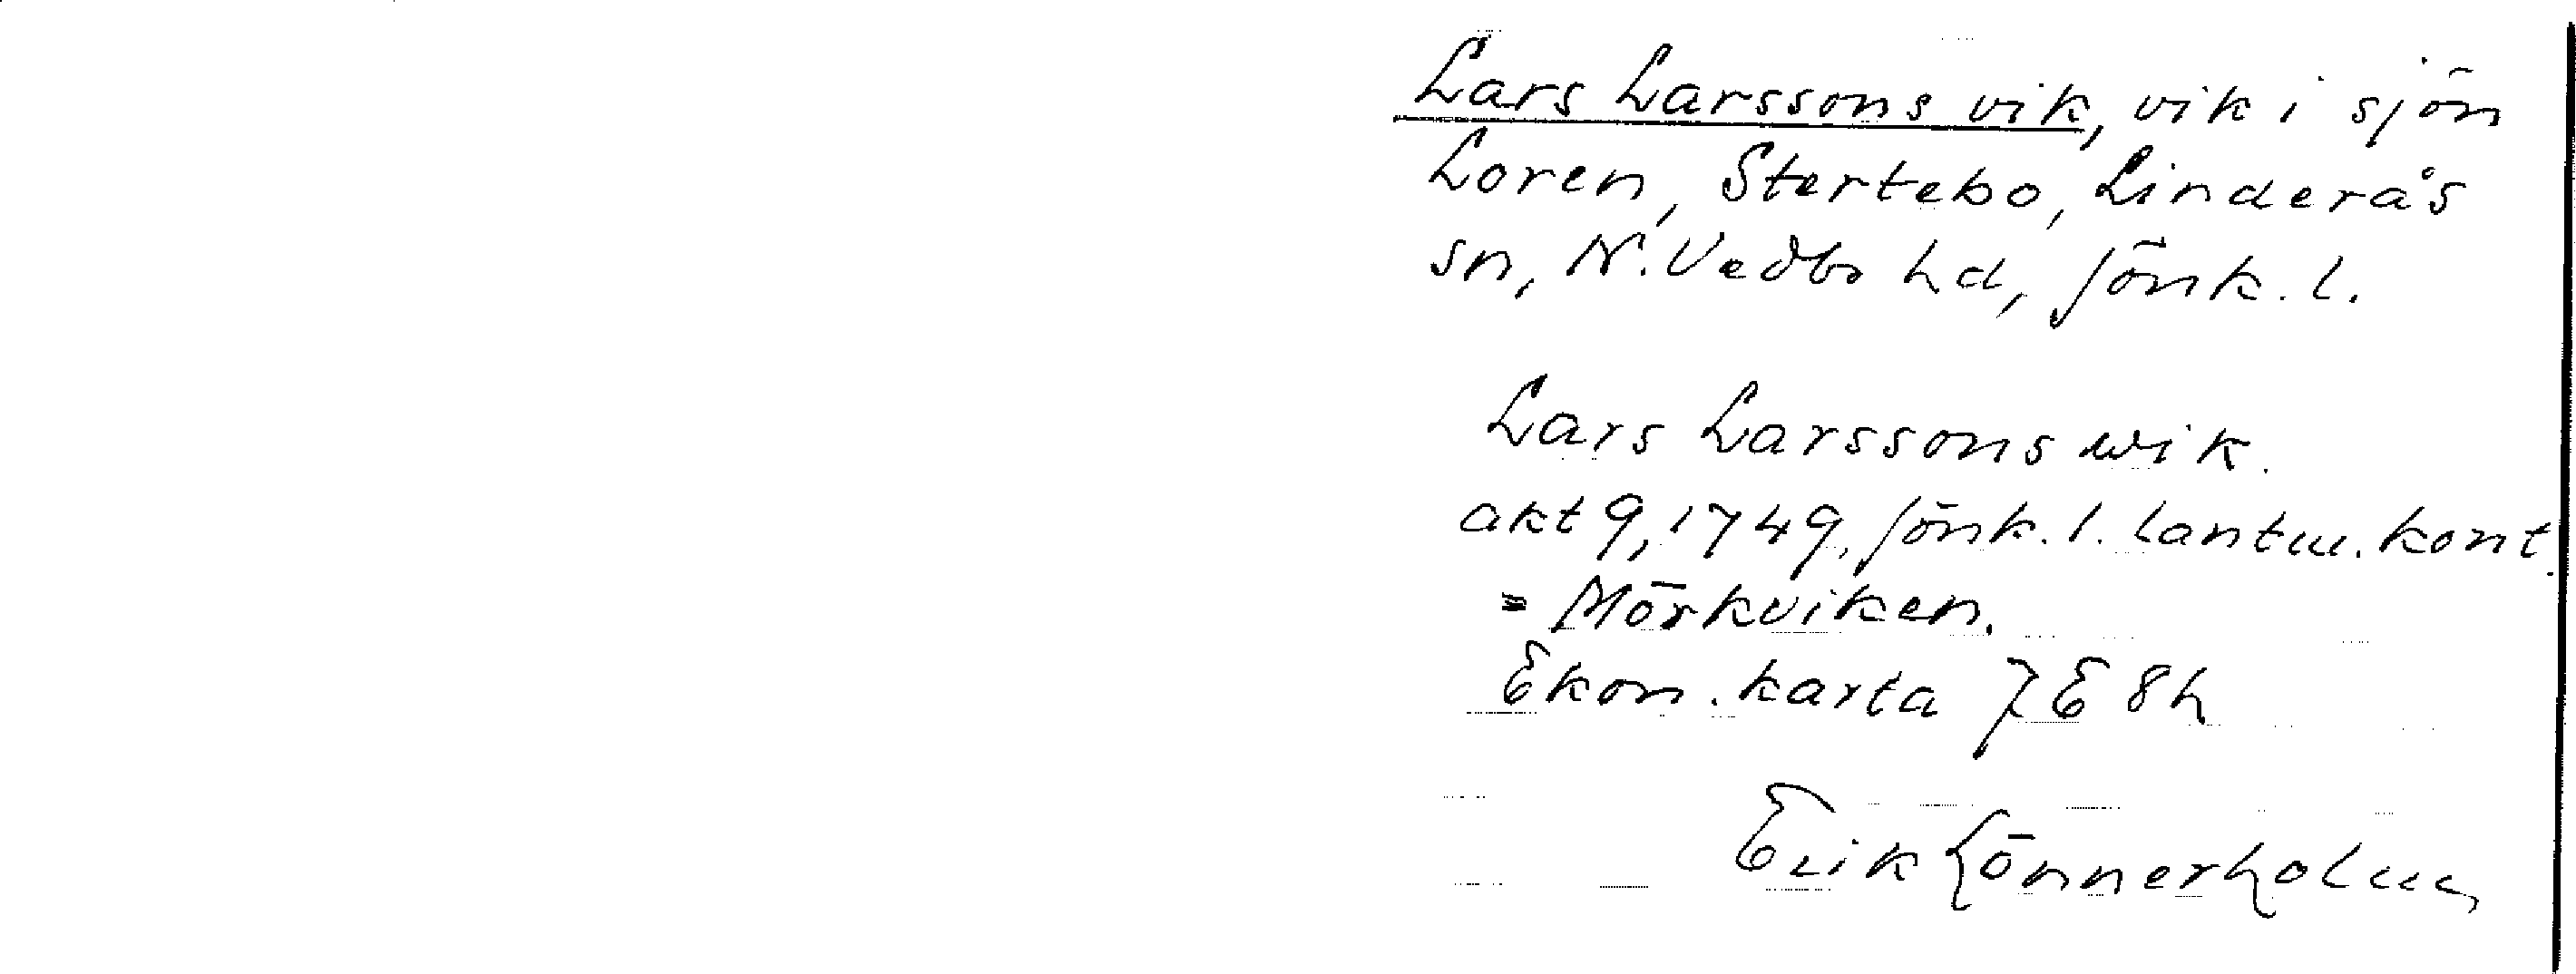 Lars Larssons vik, vik i sjön
Loren, Stertebo, Linderås
sn, N. Vedbo hd, Jönk. l.
Lars Larssons wik.
akt 9, 1749, Jönk. l. lantm. kont.
= Mörkviken.
Ekon. karta 7 E 8h
Erik Lönnerholm